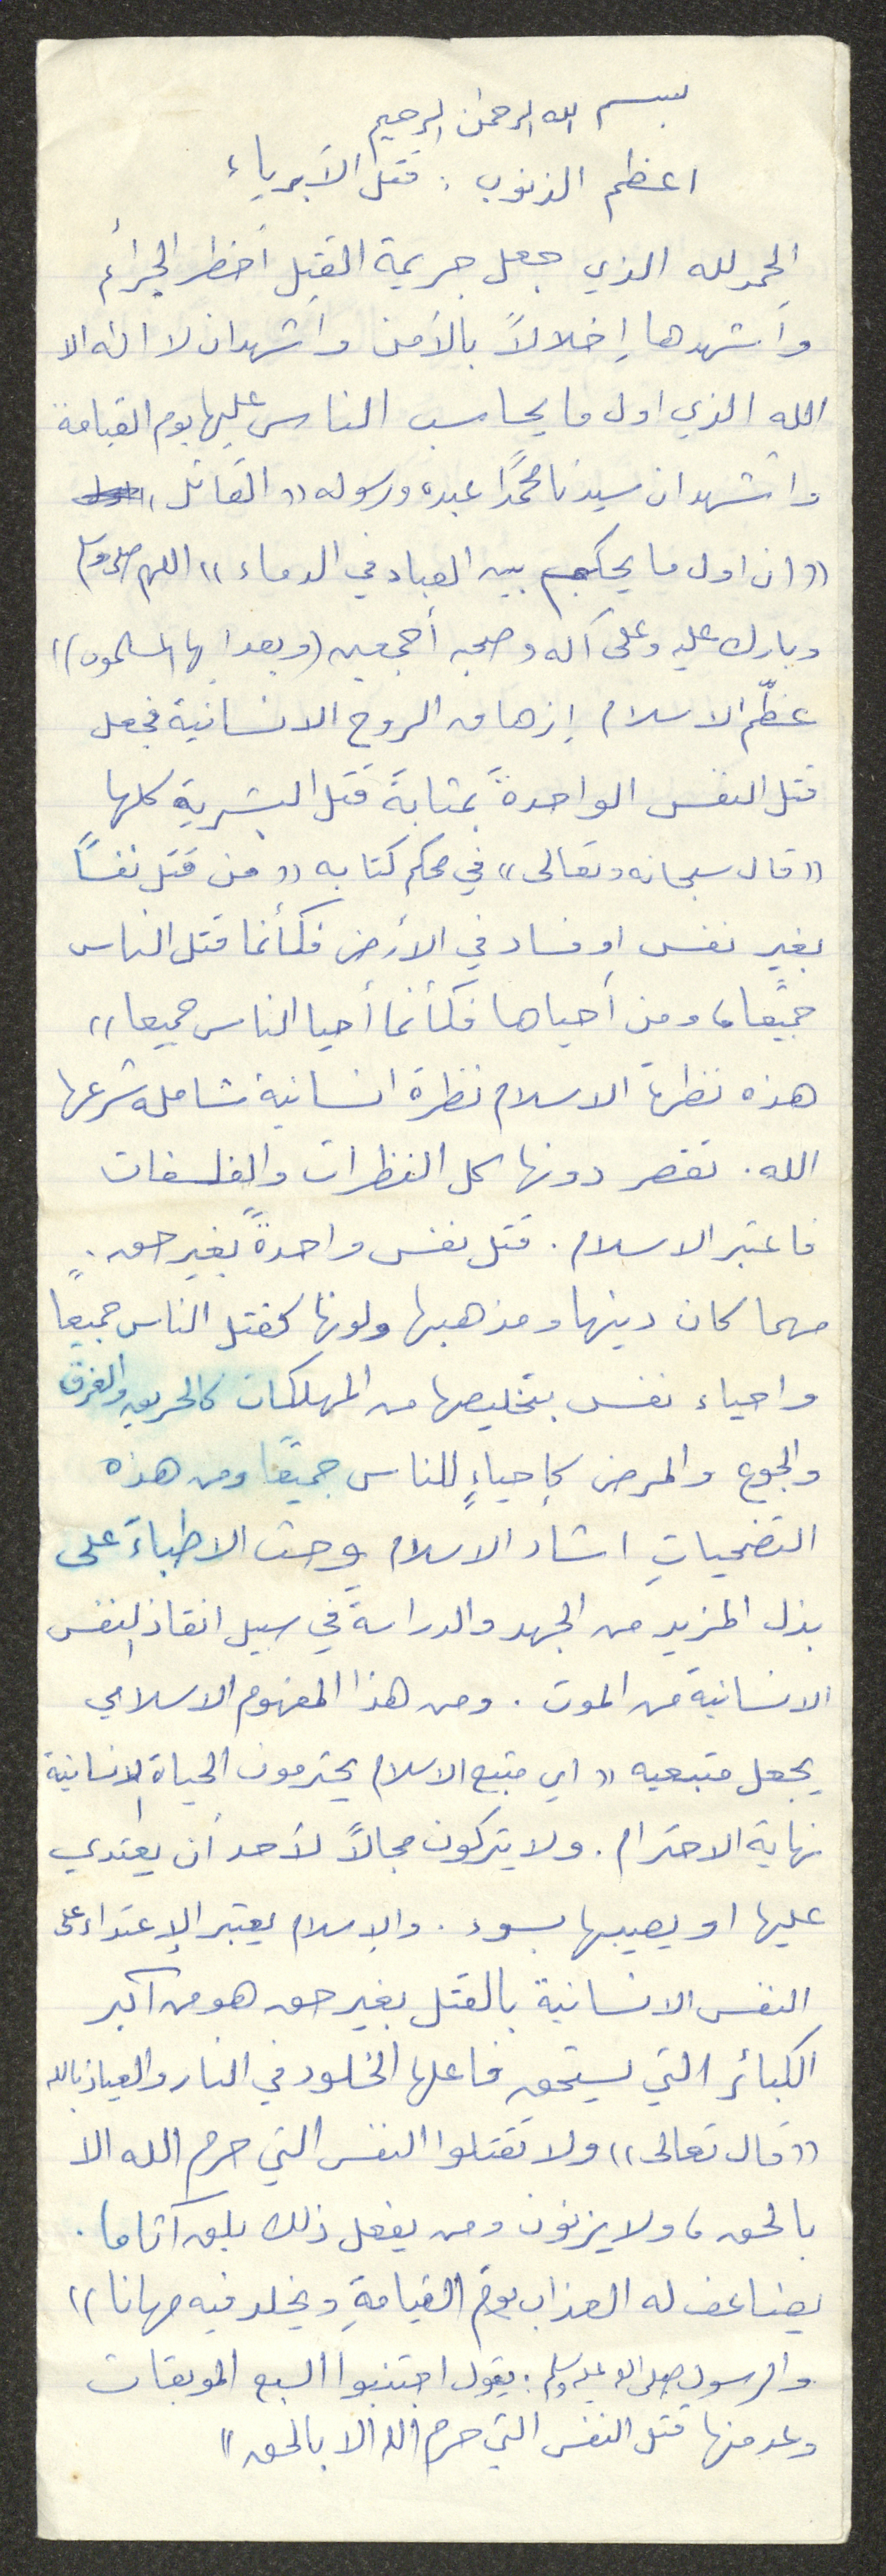 بسم الله الرحمن الرحيم
اعظم الذنوب : قتل الأبرياء
الحمد لله الذي جعل جريمة القتل أخطر الجرائم
وأشهدها إخلالاً بالأمن واشهد ان لا اله الا
الله الذي اول ما يحاسب الناس عليها يوم القيامة
واشهد ان سيدنا محمدًا عبده ورسوله «القائل»
«ان اول ما يحكم بين العباد في الدماء» اللهم صلى وسلم
وبارك عليه وعلى آله وصحبه أجمعين (وبعد ايها المسلمون)
عظّم الاسلام إزهاق الروح الانسانية فجعل
قتل النفس الواحدةً بمثابةً قتل البشرية كلها
«قال سبحانه وتعالى» في محكم كتابه «من قتل نفسًا
بغير نفس او فساد في الأرض فكأنما قتل الناس
جميعًا، ومن أحياها فكأنما أحيا الناس جميعا»
هذه نظرة الاسلام نظرة انسانية شاملة شرعها
الله . تقصر دونها كل النظرات والفلسفات
فاعتبر الاسلام . قتل نفس واحدةً بغير حق .
مهما كان دينها ومذهبها ولونها كقتل الناس جميعًا
واحياء نفس بتخليصها من المهلكات كالحريق والغرق
والجوع والمرض كإحياءٍ للناس جميعًا ومن هذه
التضحياتِ اشاد الاسلام وحث الاطباءَ على
بذل المزيد من الجهد والدراسة في سبيل انقاذ النفس
الانسانية من الموت . ومن هذا المفهوم الاسلامي
يجعل متبعيه «اي متبع الاسلام يحترمون الحياة الانسانية
نهاية الاحترام . ولا يتركون مجالاً لأحد أن يعتدي
عليها او يصيبها بسوء . والاسلام يعتبر الإعتداء على
النفس الانسانية بالقتل بغير حق هو من اكبر
الكبائر التي يستحق فاعلها الخلود في النار والعياذ بالله
«قال تعالى» ولا تقتلوا النفس التي حرم الله الا
بالحق، ولا يزنون ومن يفعل ذلك يلق آثاما .
يضاعف له العذاب يومَ القيامةِ ويخلد فيه مهانا»
والرسول صلى الله عليه وسلم : يقول اجتنبوا السبع الموبقات
وعد منها قتل النفس التي حرم الله الا بالحق"